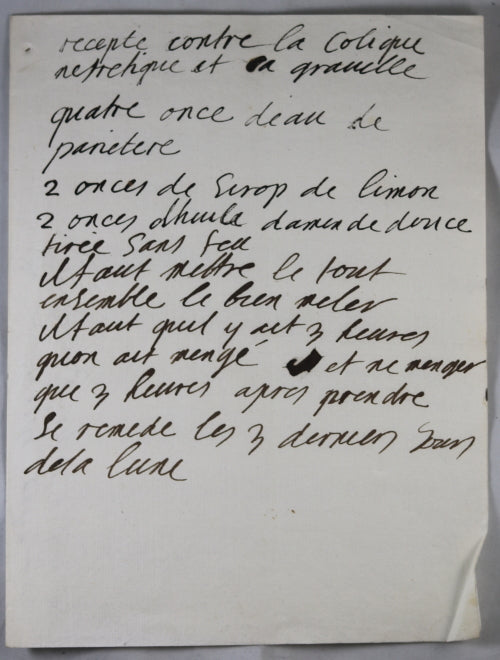 recepte contre la Colique
nefretique et la gravelle
quatre once deau de
parietere
2 onces de Sirop de limon
2 onces dhuile damende douce
tirée Sans feu
il faut mettre le tout
ensemble le bien meler
il faut quil y ait 3 heures
quon ait mengé et ne menger
que 3 heures apres prendre
Se remede les 3 derniers Jours
dela lune